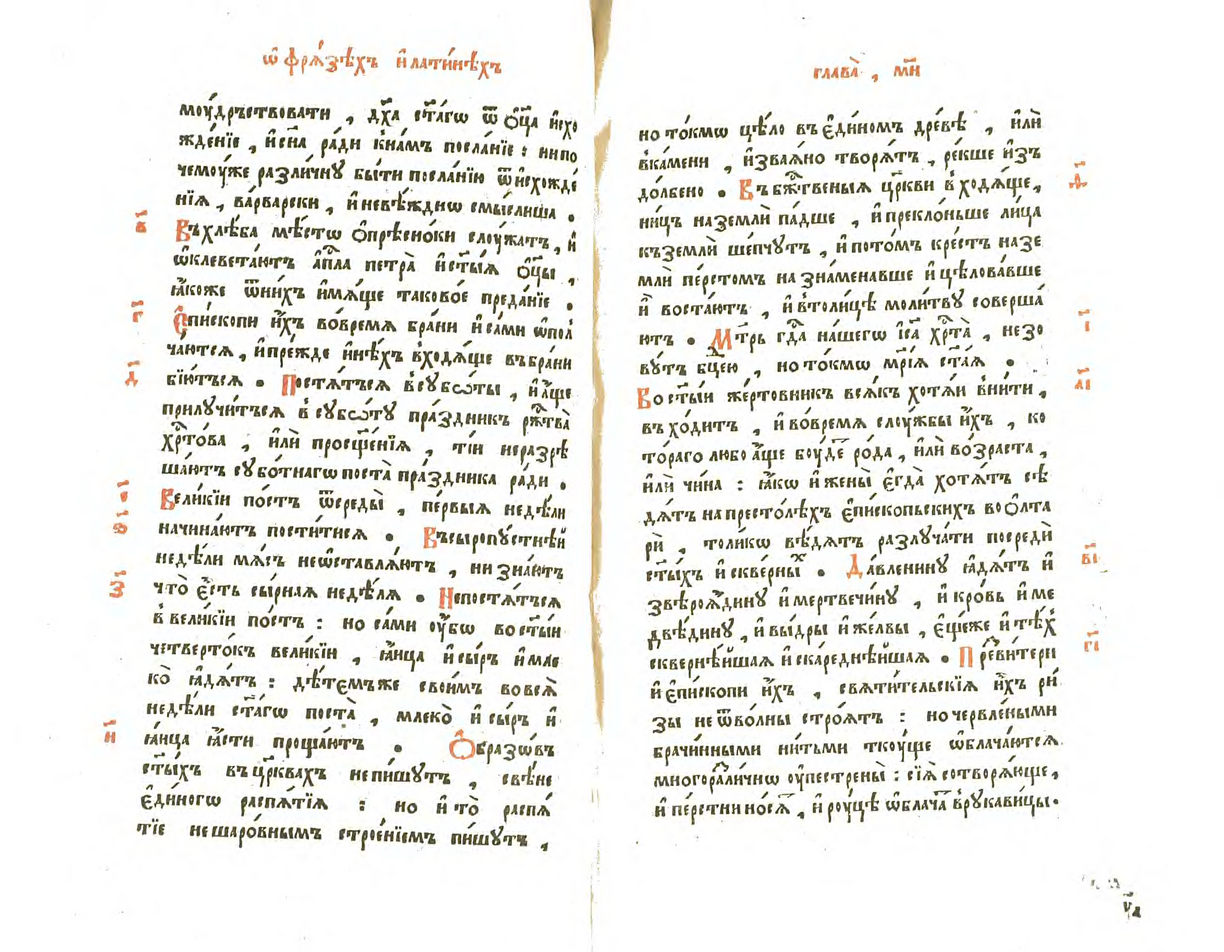 ѡ҆ фрѧ́зѣхъ и҆ лати́нѣхъ
моу́дръствовати , дх҃а ст҃а́гѡ ѿ ѻ҆ц҃а̀ и҆схо
жде́нїе , и҆ сн҃а ра́ди к̾на́мъ посла́нїе : ни по
чемоу́же разли́чнꙋ бы́ти посла́нїю ѿ и҆схожде́
нїѧ , ва́рварски , и҆ невѣ́жднѡ смы́слиша .
в҃
Въ хлѣ́ба мѣ́стѡ ѻ҆прѣсно́ки слоу́жатъ , и҆
ѡ҆клевета́ютъ а҆пⷭ҇ла петра̀ и҆ ст҃ы́ѧ ѻ҆ц҃ы̀ ,
ꙗ҆́коже ѿ ни́хъ и҆мѧ́ще таково́е преда́нїе .
г҃
Є҆пи́скопи и҆́хъ во́ времѧ бра́ни и҆ са́ми ѡ҆пол
ча́ютсѧ , и҆ пре́жде и҆нѣ́хъ в̾ходѧ́ще въ бра́ни
д҃
бїю́тъсѧ . Постѧ́тъсѧ в̾ сꙋбѡ́ты , и҆ а҆́ще
прилꙋчи́тъсѧ в̾ сꙋбѡ́тꙋ пра́здникъ ржⷭ҇тва̀
хрⷭ҇то́ва , и҆лѝ просщ҃е́нїѧ , ті́и не разрѣ
ша́ютъ сꙋбо́тнагѡ поста̀ пра́здника ра́ди .
є҃
Вели́кїи по́стъ ѿ среды̀ , пе́рвыѧ недѣ́ли
ѕ҃
начина́ютъ пости́тисѧ . Въ сыропꙋ́стнѣй
недѣ́ли мѧ́съ не ѡ҆ставлѧ́ютъ , ни зна́ютъ
з҃
что̀ є҆́сть сы́рнаѧ недѣ́лѧ . Не постѧ́тъсѧ
в̾ вели́кїи по́стъ : но са́ми ᲂу҆́бѡ во ст҃ы́и
четверто́къ вели́кїи , ꙗ҆́ица и҆ сы́ръ и҆ мле
ко̀ ꙗ҆дѧ́тъ : дѣ́темъже свои́мъ во всѧ̀
недѣ́ли ст҃а́гѡ поста̀ , млеко̀ и҆ сы́ръ и҆
и҃
ꙗ҆́ица ꙗ҆́сти проща́ютъ . Ѻ҆́бразѡвъ
ст҃ы́хъ въ цр҃квахъ не пи́шꙋтъ , свѣ́не
є҆ди́ногѡ распѧ́тїѧ : но и҆ то̀ распѧ́
тїе не шаро́внымъ строе́нїемъ пи́шꙋтъ ,
глава̀ , м҃и
но то́кмѡ цѣ́ло въ є҆ди́номъ дре́вѣ , и҆лѝ
в̾ ка́мени , и҆зваѧ́но творѧ́тъ , ре́кше и҆зъ
ѳ҃
до́лбено . Въ бжⷭ҇твеныѧ цр҃кви в̾ходѧ́ще ,
ни́цъ на землѝ па́дше , и҆ прекло́ньше ли́ца
къ землѝ ше́пчꙋтъ , и҆ пото́мъ кре́стъ на зе
млѝ пе́рстомъ на зна́менавше и҆ цѣлова́вше
и҆ востаю́тъ , и҆ в̾толи́цѣ моли́твꙋ соверша́
і҃
ютъ . Мт҃рь гдⷭ҇а на́шегѡ і҆с҃а хрⷭ҇та̀ , не зо
вꙋ́тъ бц҃ею , но то́кмѡ мр҃і́ѧ ст҃а́ѧ .
а҃і
Во ст҃ы́и же́ртовникъ всѧ́къ хотѧ́и вни́ти ,
въхо́дитъ , и҆ во́ времѧ слоу́жбы и҆́хъ , ко
то́раго любо а҆́ще боу́де ро́да , и҆лѝ во́зраста ,
и҆лѝ чи́на : ꙗ҆́кѡ и҆ жены̀ є҆гда̀ хотѧ́тъ сѣ
дѧ́тъ на престо́лѣхъ є҆пи́скопьскихъ во ѻ҆лта
рѝ , толи́кѡ вѣ́дѧтъ разлꙋча́ти посредѝ
в҃і
ст҃ы́хъ и҆ скве́рныⷯ . Да́вленинꙋ ꙗ҆дѧ́тъ и҆
звѣроѧ́динꙋ и҆ мертвечи́нꙋ , и҆ кро́вь и҆ ме
двѣ́динꙋ , и҆ вы́дры и҆ же́лвы , є҆щеже и҆ тѣ́х
г҃і
сквернѣ́йшаѧ и҆ скареднѣ́йшаѧ . Презви́тери
и҆ є҆пи́скопи и҆́хъ , свѧти́тельскїѧ и҆́хъ ри́
зы не ѿ во́лны строѧ́тъ : но червле́ными
брачи́нными ни́тьми ткоу́ще ѡ҆блача́ютсѧ
многоразли́чнѡ ᲂу҆пестрены̀ : сїѧ̀ сотворѧ́юще ,
и҆ пе́рстни носѧ́ , и҆ роу́цѣ ѡ҆блача̀ в̾ рꙋкави́цы .